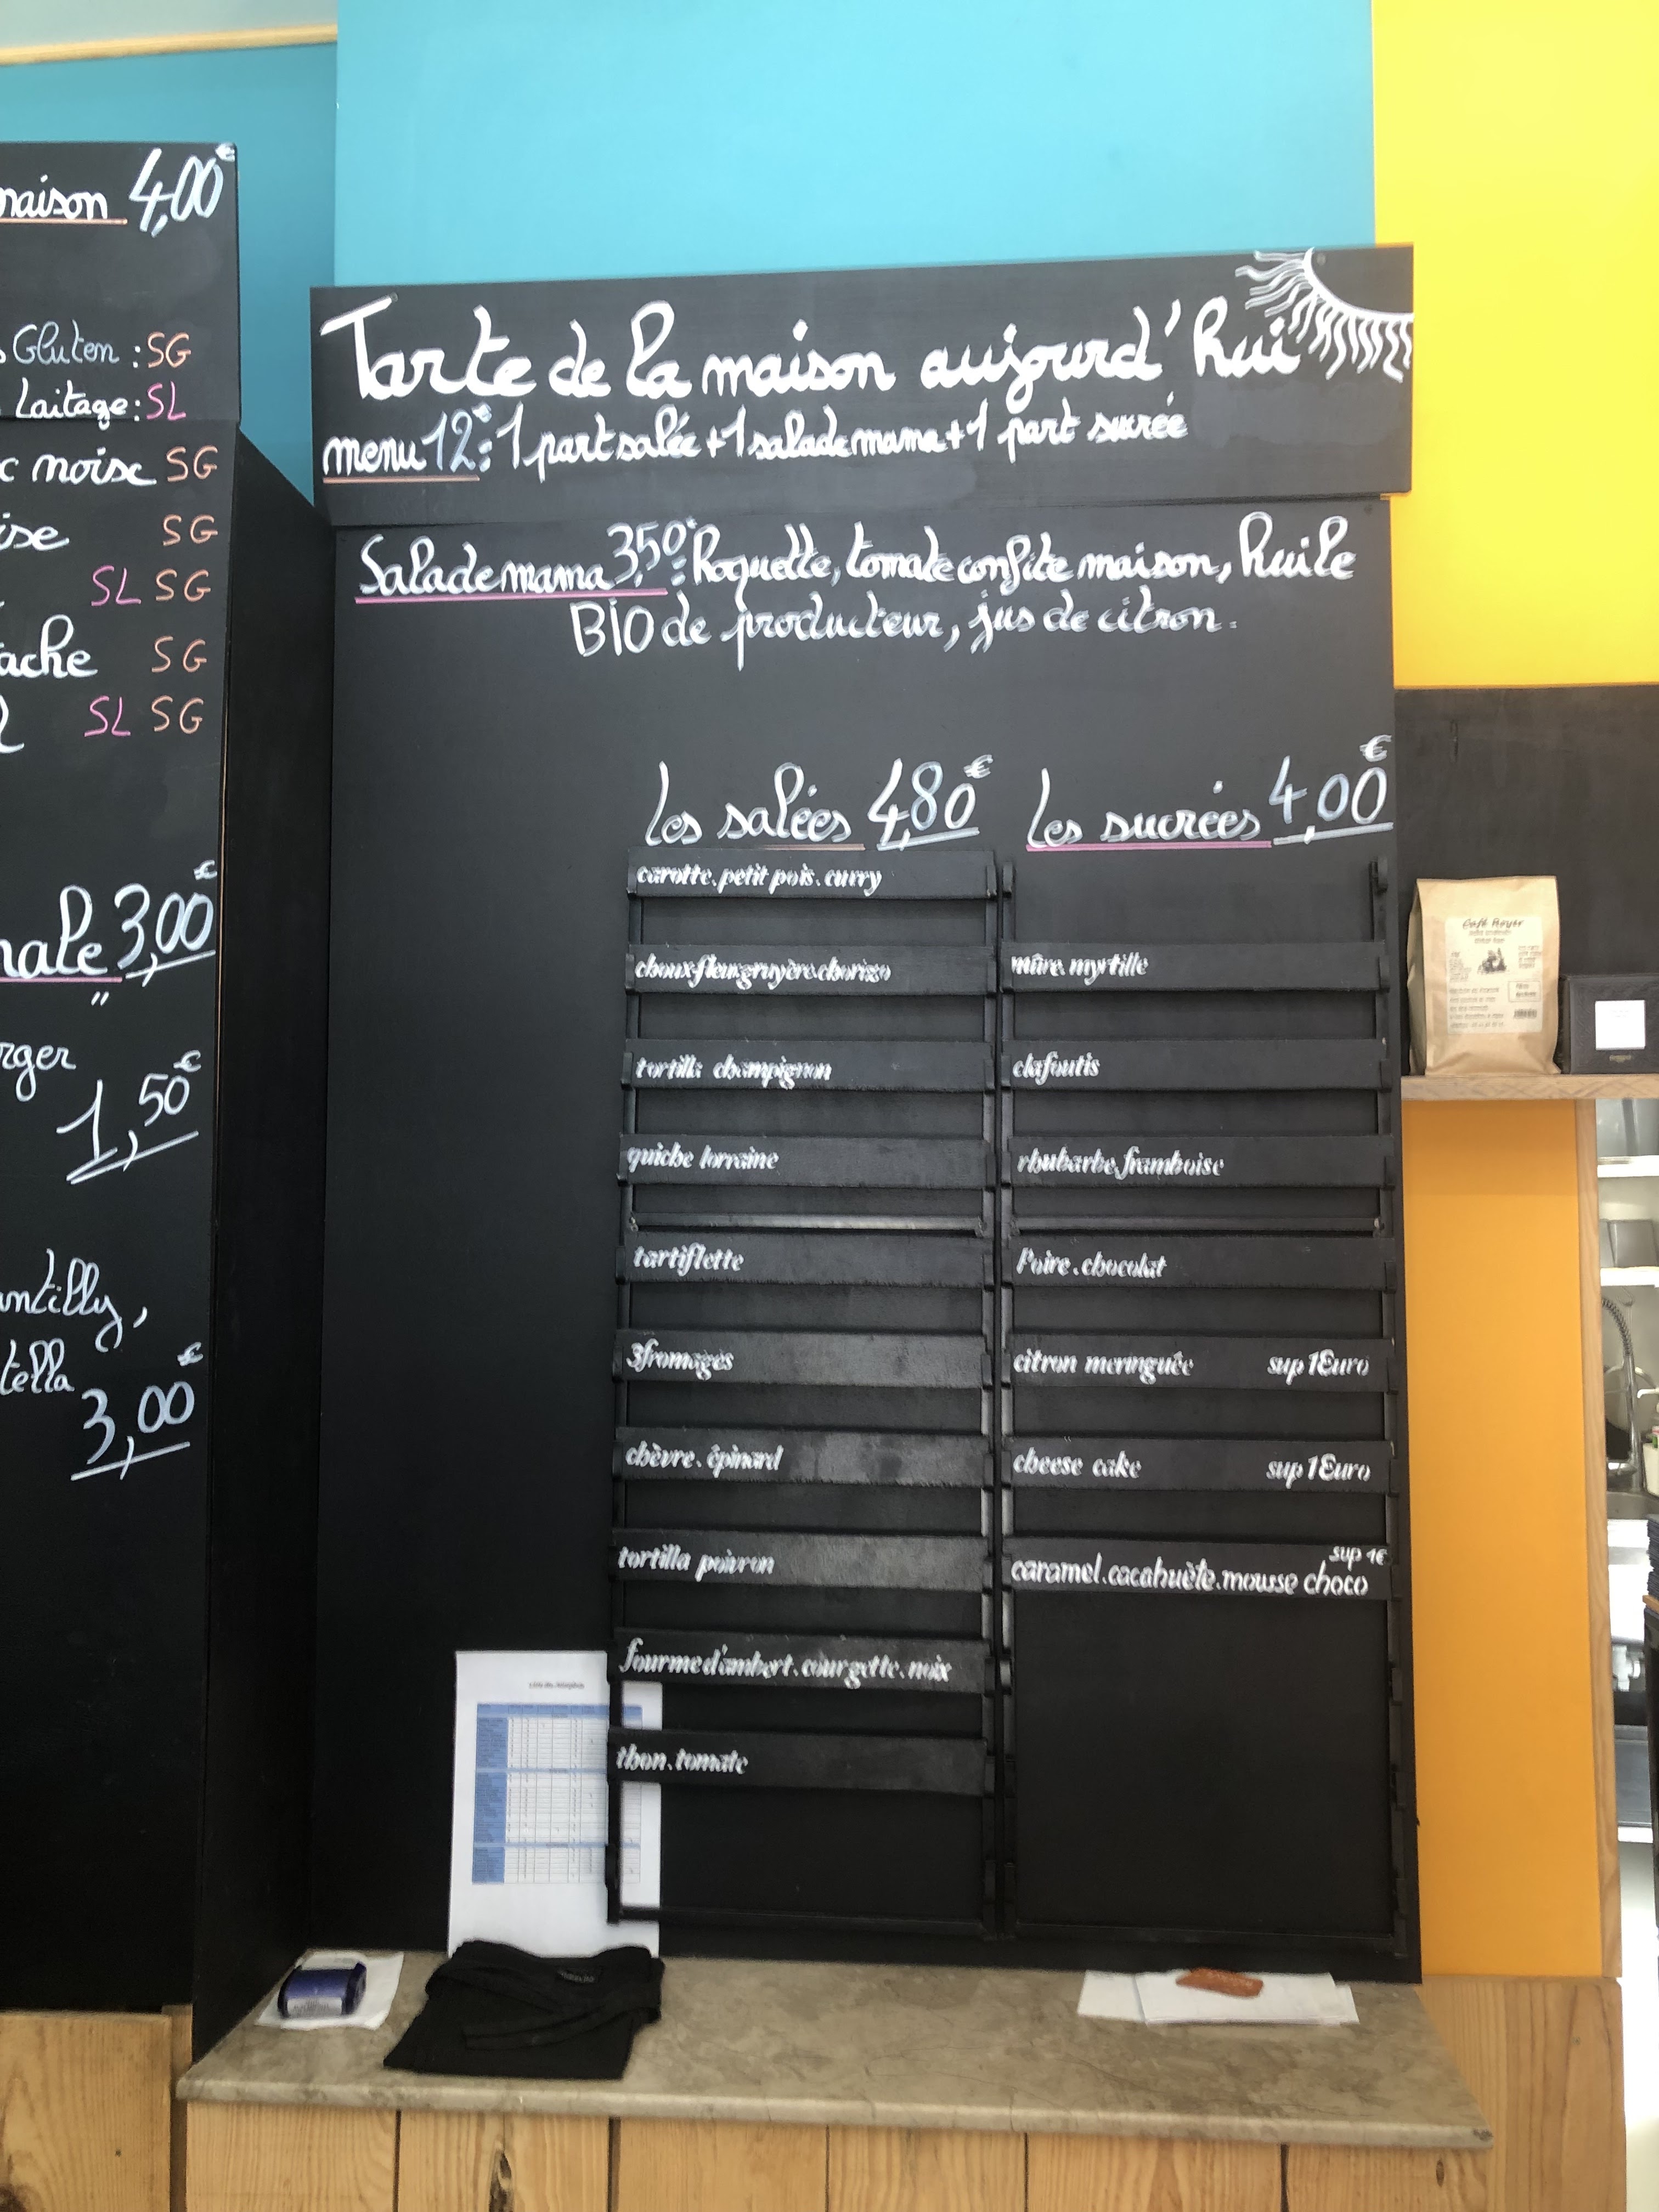 maison 4,00€
Gluten : SG
Laitage : SL
noise SG
SG
SL SG
SG
SL SG
3,00€
"
1,50€
3,00€
Tarte de la maison aujourd'hui
menu 12€ : 1 part salée + 1 salade mama + 1 part sucrée
Salade mama 3,50€ : Roquette, tomate confite maison, huile
BIO de producteur, jus de citron.
Les salées 4,80€
carotte.petit pois.curry
choux-fleur.gruyère.chorizo
tortilla champignon
quiche lorraine
tartiflette
3fromages
chèvre.épinard
tortilla poivron
fourme d'ambert.courgette.noix
thon.tomate
Les sucrées 4,00€
mûre.myrtille
clafoutis
rhubarbe.framboise
Poire.chocolat
citron meringuée sup 1Euro
cheese cake sup 1Euro
sup 1€
caramel.cacahuète.mousse choco
Café Royer